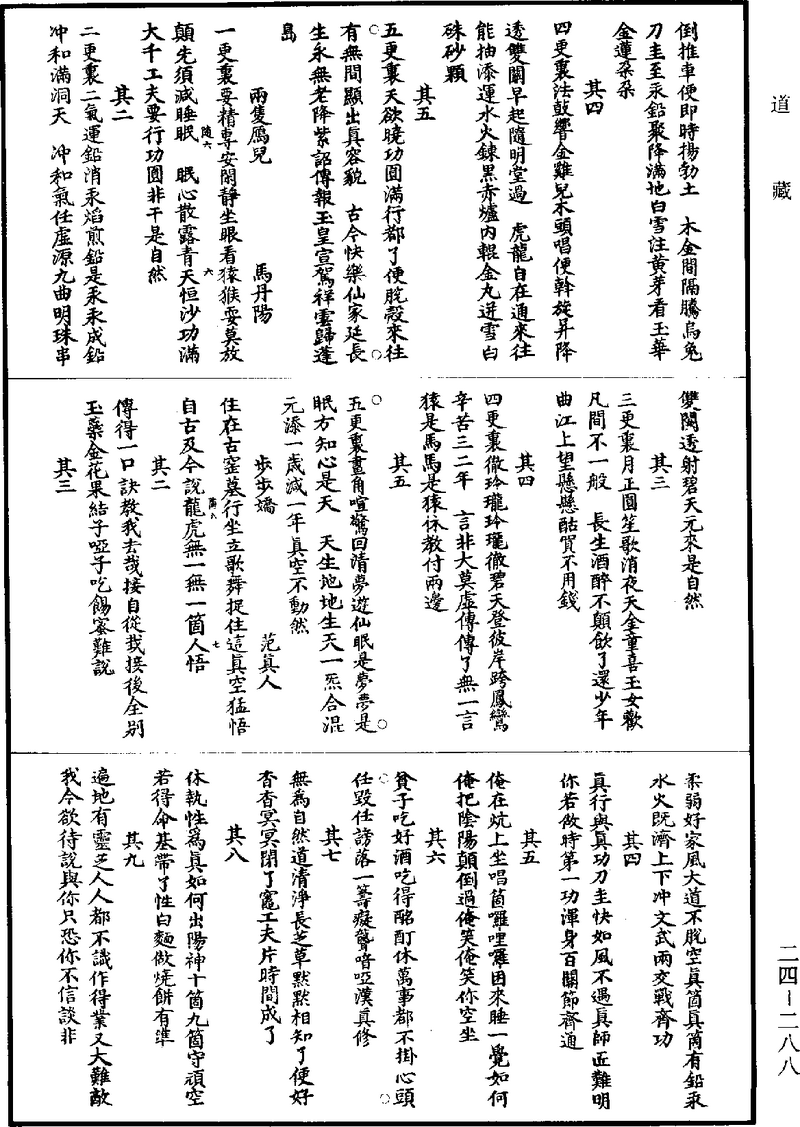 道藏
倒推車便即時揚勃土　木金間隔騰烏兔
刀圭至汞鉛聚降滿地白雪註黃芽看玉華
金蓮朶朶
其四
四更裏法鼓響金雞兒木頭唱便斡旋昇降
透雙關早起隨明堂過　虎龍自在通來往
能抽添運水火鍊黑赤爐內輥金丸迸雪白
硃砂顆
其五
五更裏天欲曉功圓滿行都了便脫殼來往
有無間顯出真容貌　古今快樂仙家延長
生永無老降紫詔傳報玉皇宣駕祥雲歸蓬
島
兩隻鴈兒　馬丹陽
一更裏要精專安閑靜坐眼看猿猴耍莫放
顛先須減睡眠　眠心散露青天恒沙功滿
大千工夫要行功圓非干是自然
隨六
六
其二
二更裏二氣運鉛消汞焰煎鉛是汞汞成鉛
冲和滿洞天　冲和氣任虛源九曲明珠串
雙關透射碧天元來是自然
其三
三更裏月正圓笙歌消夜天金童喜玉女歡
凡間不一般　長生酒醉不顛飲了還少年
曲江上望懸懸酤買不用錢
其四
四更裏徹玲瓏玲瓏徹碧天登彼岸跨鳳鸞
辛苦三二年　言非大莫虛傳傳了無一言
猿是馬馬是猿休教付兩邊
其五
五更裏畫角喧驚回清夢遊仙眠是夢夢是
眠方知心是天　天生地地生天一炁合混
元添一歲減一年真空不動然
步步嬌　范真人
住在古窰墓行坐立歌舞捉住這真空猛悟
自古及今說龍虎無一無一箇人悟
隨六
七
其二
傳得一口訣教我去哉接自從哉接後全別
玉藥金花果結子啞子吃餳蜜難說
其三
柔弱好家風大道不脫空真箇真箇有鉛汞
水火既濟上下冲文武兩交戰齊功
其四
真行與真功刀圭快如風不遇真師匠難明
你若做時第一功渾身百關節齊通
其五
俺在炕上坐唱箇囉哩囉困來睡一覺如何
俺把陰陽顛倒過俺笑俺笑你空坐
其六
貧子吃好酒吃得酩酊休萬事都不掛心頭
任毀任謗落一籌癡聾喑啞漢真修
其七
無為自然道清淨長芝草默默相知了便好
杳杳冥冥閉了竈工夫片時間成了
其八
休執性為真如何出陽神十箇九箇守頑空
若得命基帶了性白麵做燒餅有準
其九
遍地有靈乏人人都不識作得業又大難敵
我今欲待說與你只恐你不信談非
二四—二八八